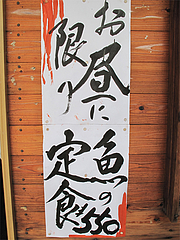 お昼に
限り
魚の
定食¥550